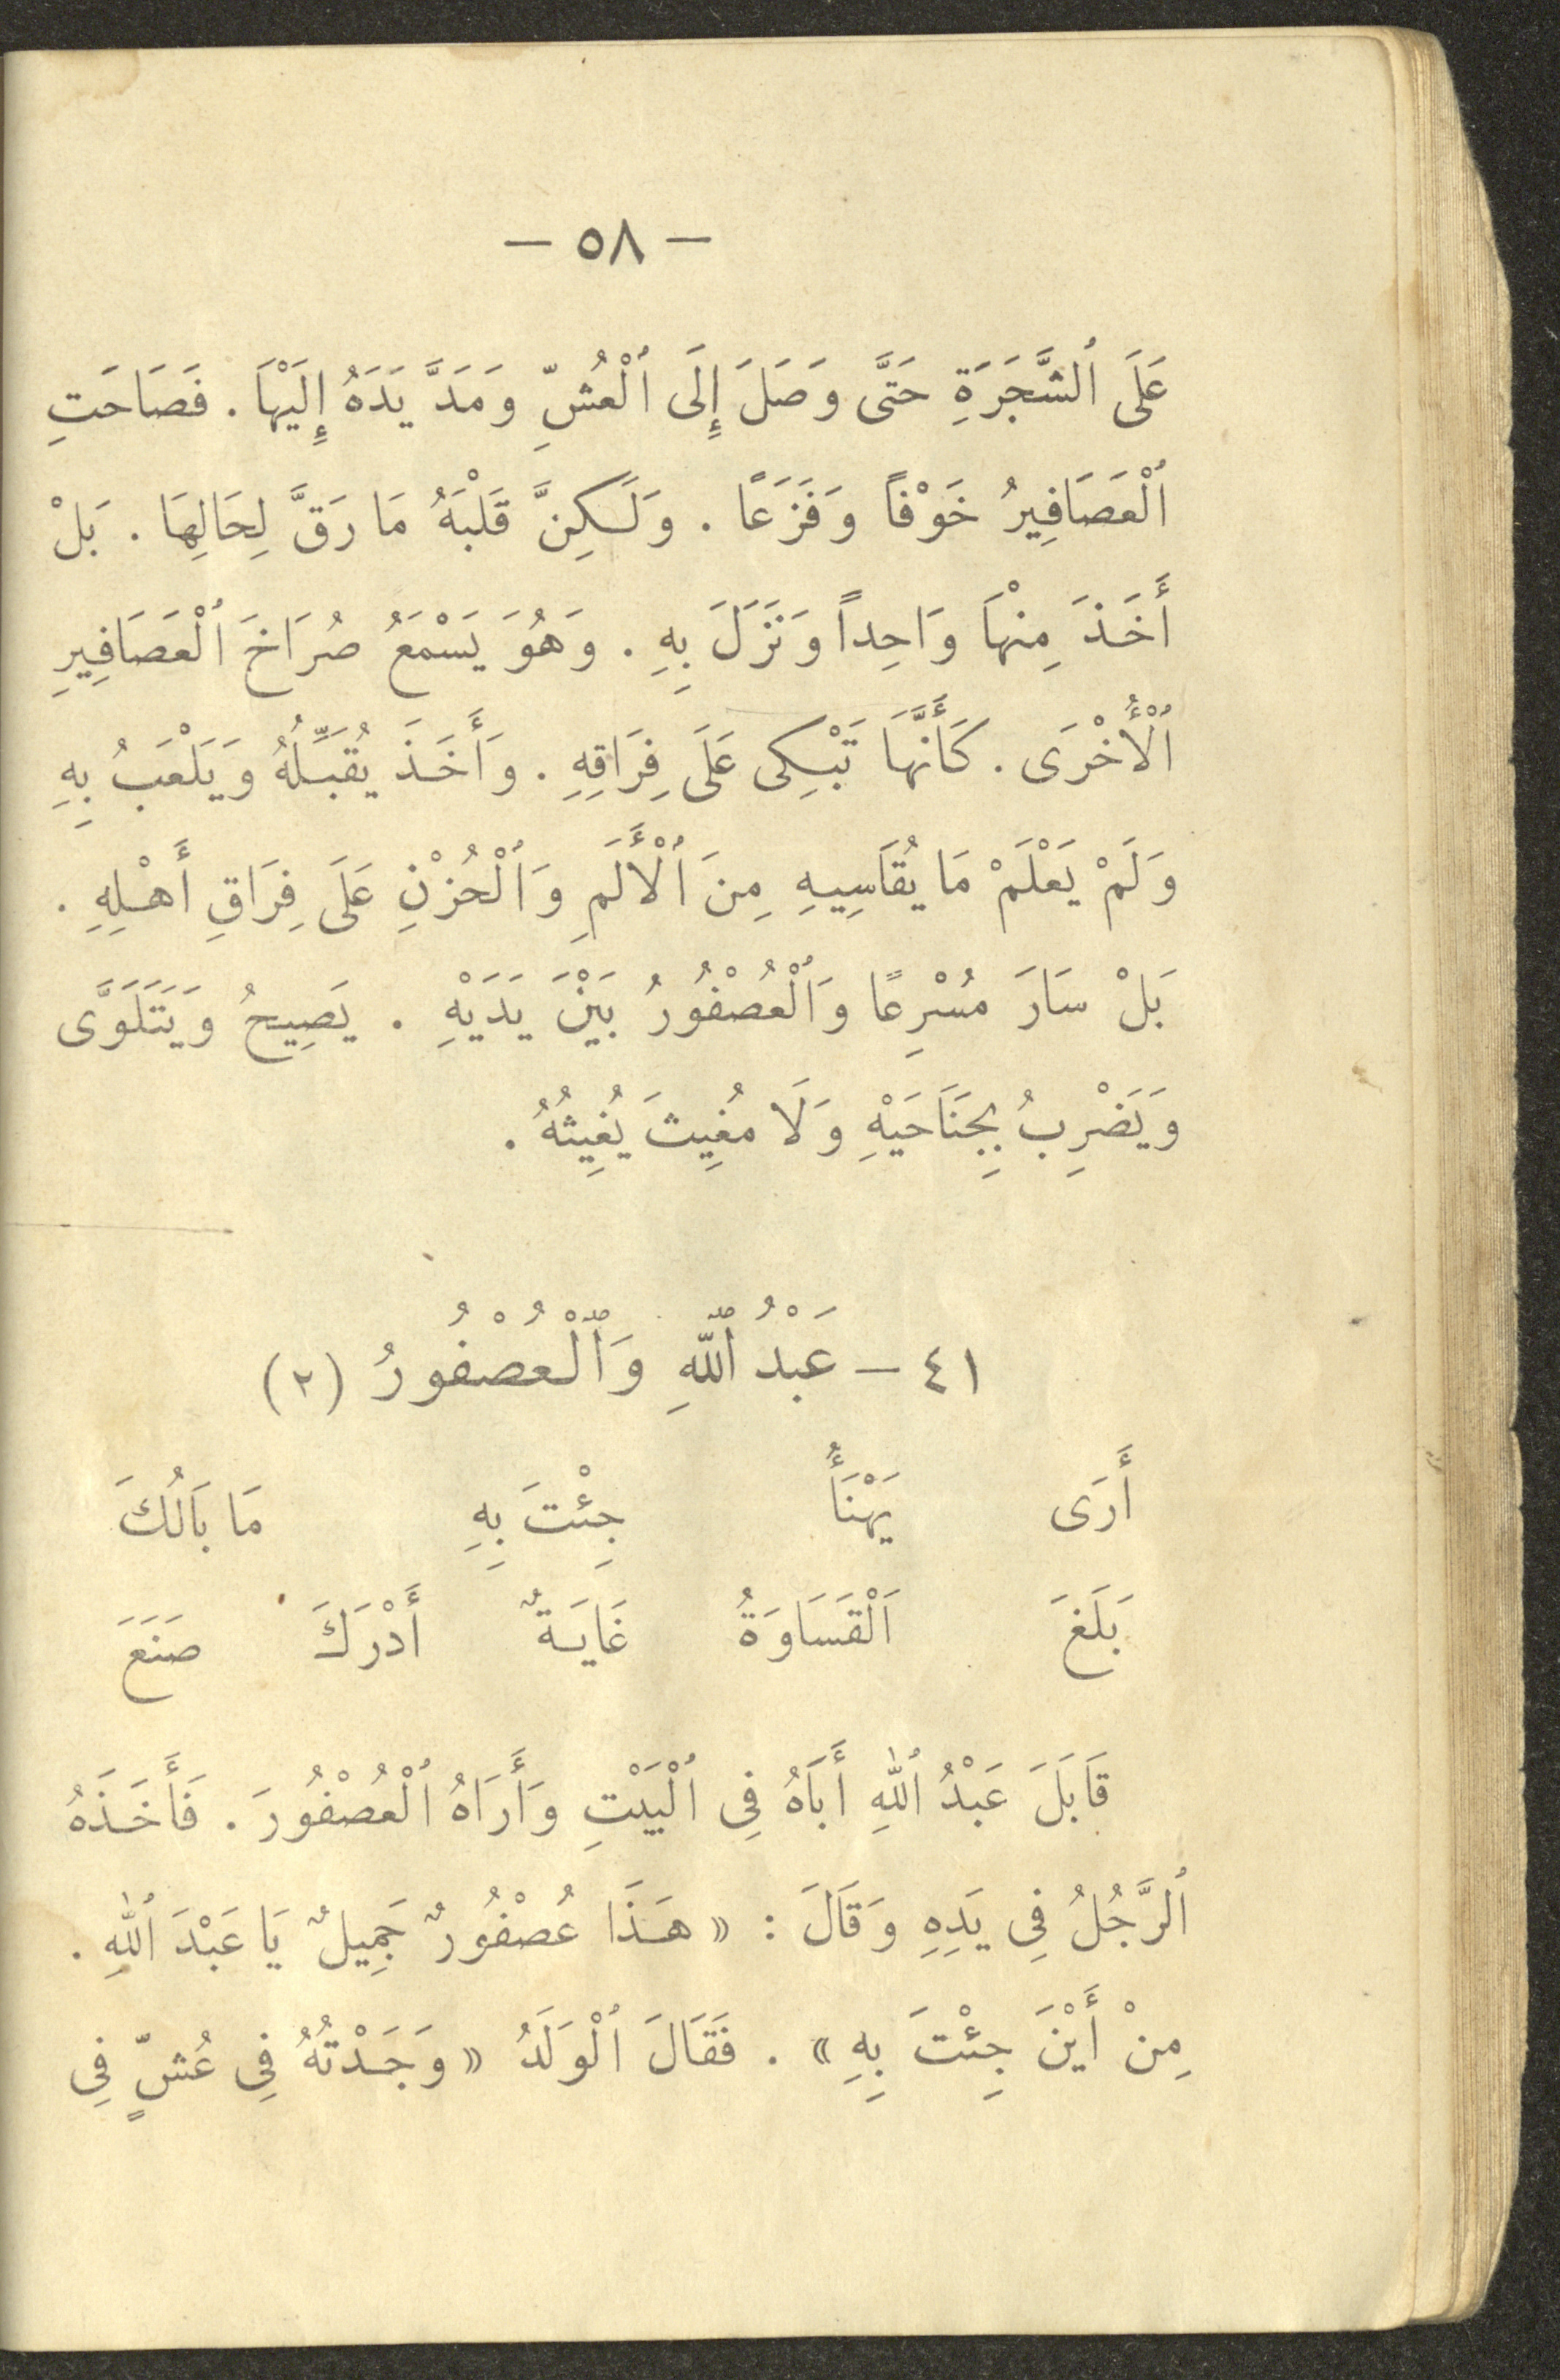 — ٥٨ —
عَلَى ٱلشَّجَرَةِ حَتَّى وَصَلَ إِلَى ٱلْعُشِّ وَمَدَّ يَدَهُ إِلَيْهَا . فَصَاحَتِ
ٱلْعَصَافِيرُ خَوْفاً وَفَزَعًا . وَلَكِنَّ قَلْبَهُ مَا رَقَّ لِحَالِهَا . بَلْ
أَخَذَ مِنْهَا وَاحِداً وَنَزَلَ بِهِ . وَهُوَ يَسْمَعُ صُرَاخَ ٱلْعَصَافِيرِ
ٱلْأُخْرَى . كَأَنَّهَا تَبْكِى عَلَى فِرَاقِهِ . وَأَخَذَ يُقَبِّلُهُ وَيَلْعَبُ بِهِ
وَلَمْ يَعْلَمْ مَا يُقَاسِيهِ مِنَ ٱلْأَلَمِ وَٱلْحُزْنِ عَلَى فِرَاقِ أَهْلِهِ .
بَلْ سَارَ مُسْرِعًا وَٱلْعُصْفُورُ بَيْنَ يَدَيْهِ . يَصِيحُ وَيَتَلَوَّى
وَيَضْرِبُ بِجَنَاحَيْهِ وَلَا مُغِيثَ يُغِيثُهُ .
٤١ — عَبْدُ ٱللّٰهِ وَٱلْعُصْفُورُ (٢)
أَرَى يَهْنَأُ جِئْتَ بِهِ مَا بَالُكَ
بَلَغَ اَلْقَسَاوَةُ غَايَةٌ أَدْرَكَ صَنَعَ
قَابَلَ عَبْدُ ٱللّٰهِ أَبَاهُ فِى ٱلْبَيْتِ وَأَرَاهُ ٱلْعُصْفُورَ . فَأَخَذَهُ
ٱلرَّجُلُ فِى يَدِهِ وَقَالَ : « هَذَا عُصْفُورٌ جَمِيلٌ يَا عَبْدَ ٱللّٰهِ .
مِنْ أَيْنَ جِئْتَ بِهِ » . فَقَالَ ٱلْوَلَدُ « وَجَدْتُهُ فِى عُشٍّ فِى